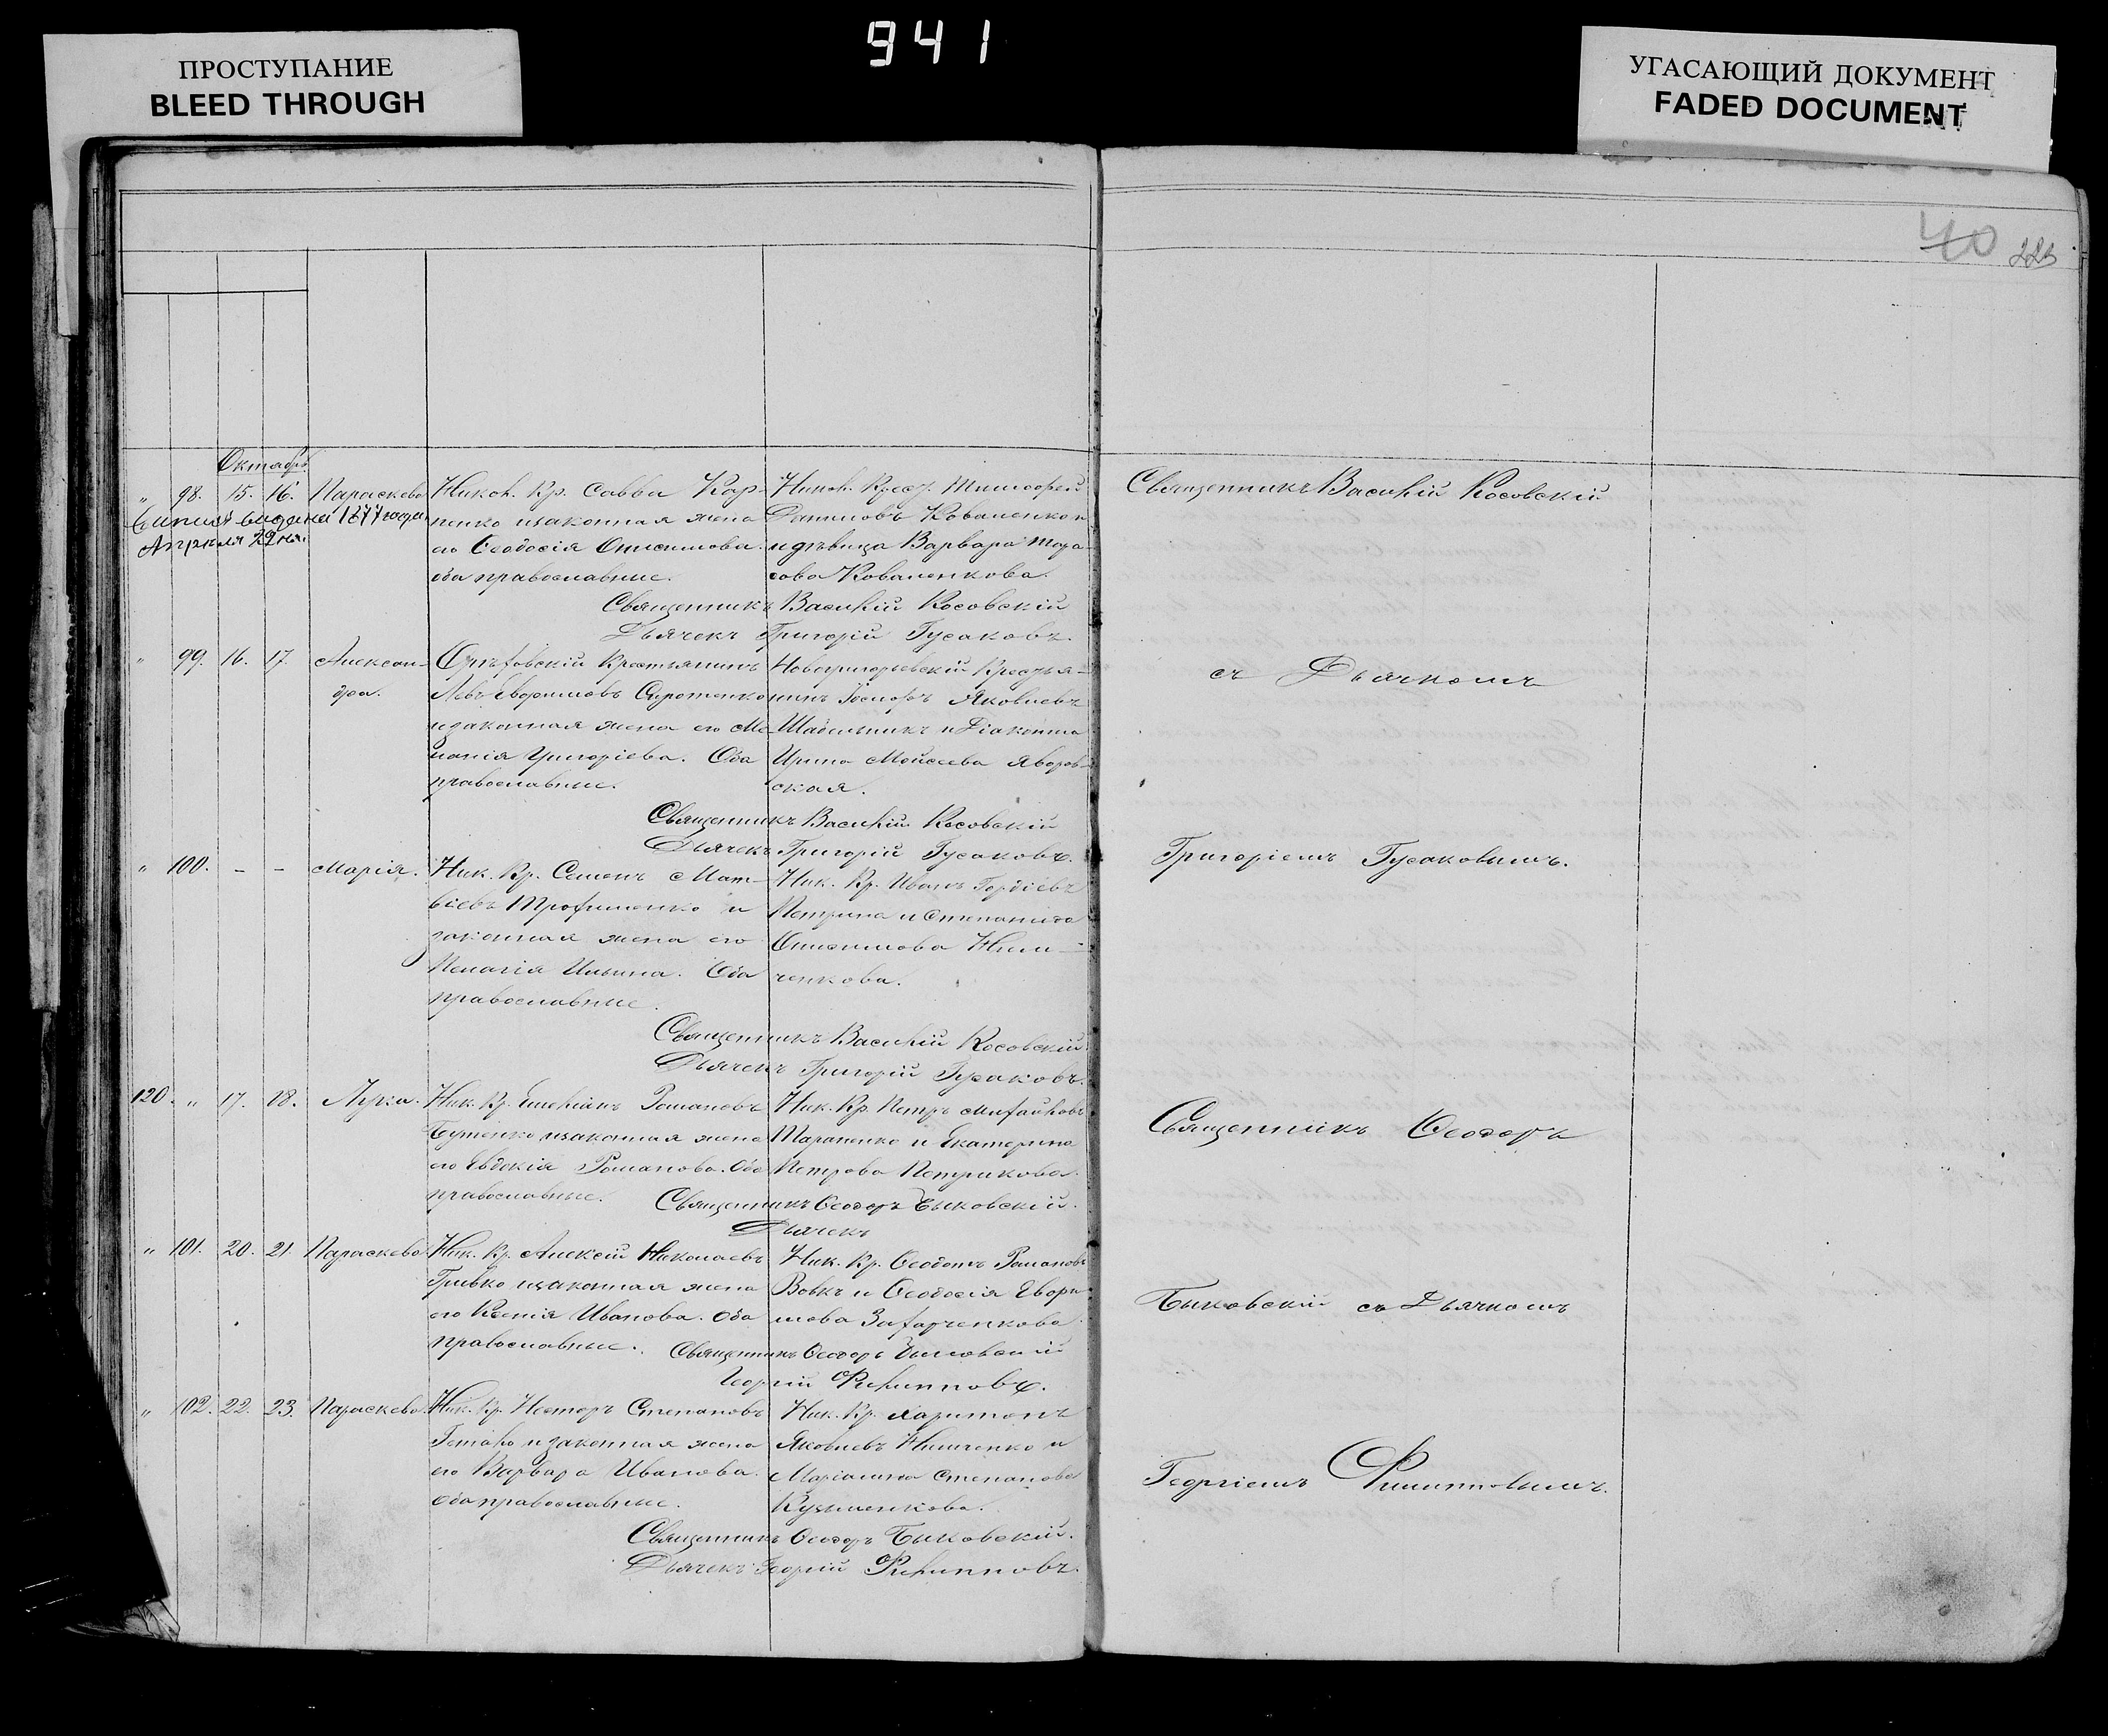 941
ПРОСТУПАНИЕ
BLEED THROUGH
УГАСАЮЩИЙ ДОКУМЕНТ
FADED DOCUMENT
40
Октябрь
" 98. 15. 16. Параскева Никол. Кр. Савва Кар-
пенко и законная жена
его Феодосія Онисимова.
оба православные.
Выпись выдана 1877 года
Апреля 22 дня.
Никол. Крест. Тимофей
Даниловъ Коваленко и
и дѣвица Варвара Тара-
сова Коваленкова.
Священникъ Василій Косовскій
Дьячекъ Григорій Гусаковъ.
" 99. 16. 17. Александ-
ра.
Крестьянинъ
Левъ Евфимовъ Сиротенко
и законная жена его Ме-
ланія Григоріева. Оба
православные.
Новогригорьевскій Крестья-
нинъ Яковлевъ
и Діаконша
Ирина Моисеева Яворов-
ская.
Священникъ Василій Косовскій
Дьячекъ Григорій Гусаковъ.
" 100. - - Марія.
Ник. Кр. Семенъ Мат-
віевъ Трофименко и
законная жена его
Пелагія Ильина. Оба
православные.
Ник. Кр. Иванъ Гордіевъ
Петрина и Степанида
Онисимова Ним-
ченкова.
Священникъ Василій Косовскій
Дьячекъ Григорій Гусаковъ.
120. " 17. 18. Лука.
Ник. Кр. Емеліанъ Романовъ
Бутенко и законная жена
его Евдокія Романова. Оба
православные.
Ник. Кр. Петръ Михайловъ
Тараненко и Екатерина
Петрова Петрикова.
Священникъ Феодоръ Быковскій.
Дьячекъ
" 101. 20. 21. Параскева
Ник. Кр. Алексій Николаевъ
Гривко и законная жена
его Ксенія Иванова. Оба
православные.
Ник. Кр. Феодотъ Романовъ
Вовкъ и Феодосія
Захарченкова.
Священникъ Феодоръ Быковскій
Георгій Филипповъ.
" 102. 22. 23. Параскева.
Ник. Кр. Несторъ Степановъ
и законная жена
его Варвара Иванова.
Оба православные.
Ник. Кр. Харитонъ
Яковлевъ Нимченко и
Маріанна Степанова
Кузьменкова.
Священникъ Феодоръ Быковскій.
Дьячекъ Георгій Филипповъ.
Священникъ Василій Косовскій
съ Дьячкомъ
Григоріемъ Гусаковымъ.
Священникъ Феодоръ
Быковскій съ Дьячкомъ
Георгіемъ Филипповымъ.